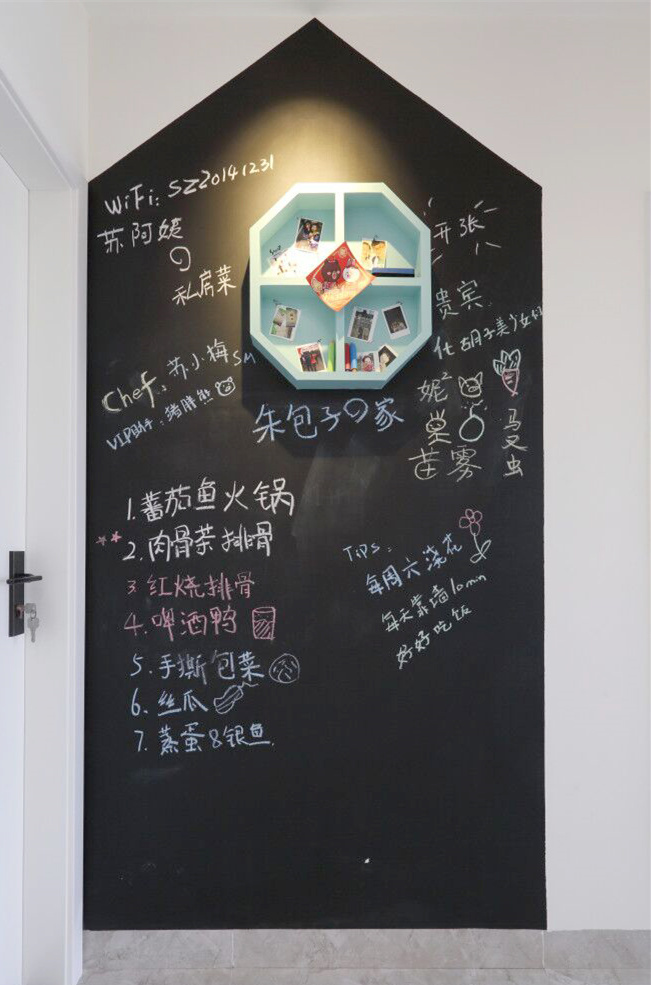 WiFi: SZ20141231
苏阿姨
の
私房菜
开张
贵宾
Chef: 苏小梅
VIP助手: 猪胖熊
朱包子の家
苗雾
1. 蕃茄鱼火锅
2. 肉骨茶排骨
3. 红烧排骨
4. 啤酒鸭
5. 手撕包菜
6. 丝瓜
7. 蒸蛋&银鱼
Tips:
每周六浇花
每天靠墙10min
好好吃饭